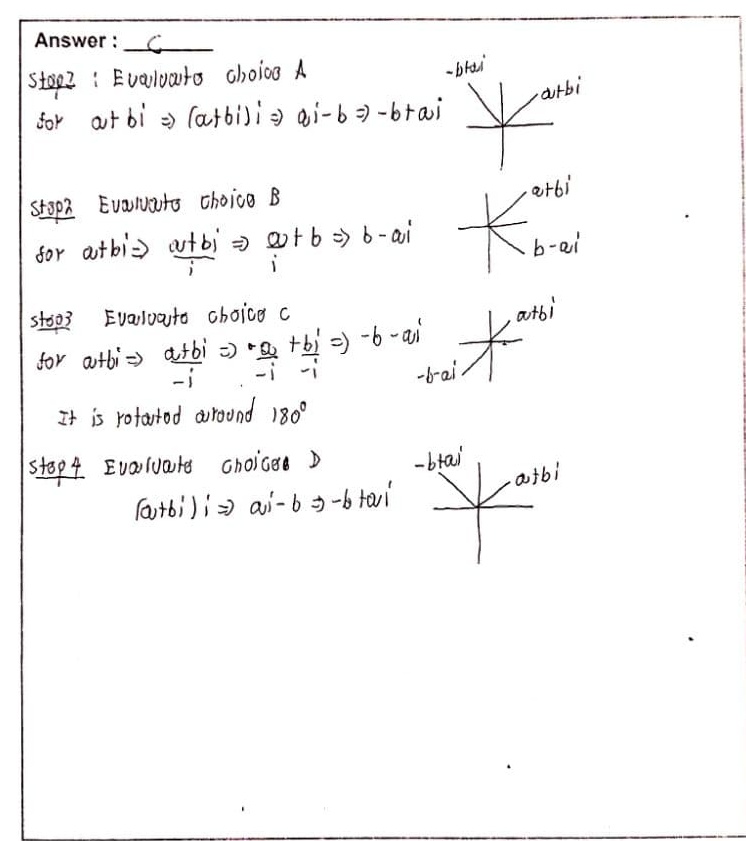 Answer : C
Step1 : Evaluate choice A
for a+bi => (a+bi)i => ai-b => -b+ai
-b+ai
a+bi
Step2 Evaluate choice B
for a+bi => a+bi/i => a/i + b => b-ai
a+bi
b-ai
Step3 Evaluate choice C
for a+bi => a+bi/-i => a/-i + bi/-i => -b-ai
a+bi
-b-ai
It is rotated around 180°
Step 4 Evaluate choice D
(a+bi)i => ai-b => -b+ai
-b+ai
a+bi